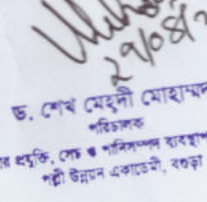 ২৭/০৪/
ড. শেখ মেহদী মোহাম্মদ
পরিচালক
প্রযুক্তি, সেচ ও পানিসম্পদ ব্যবস্থাপ
পল্লী উন্নয়ন একাডেমী, বগুড়া